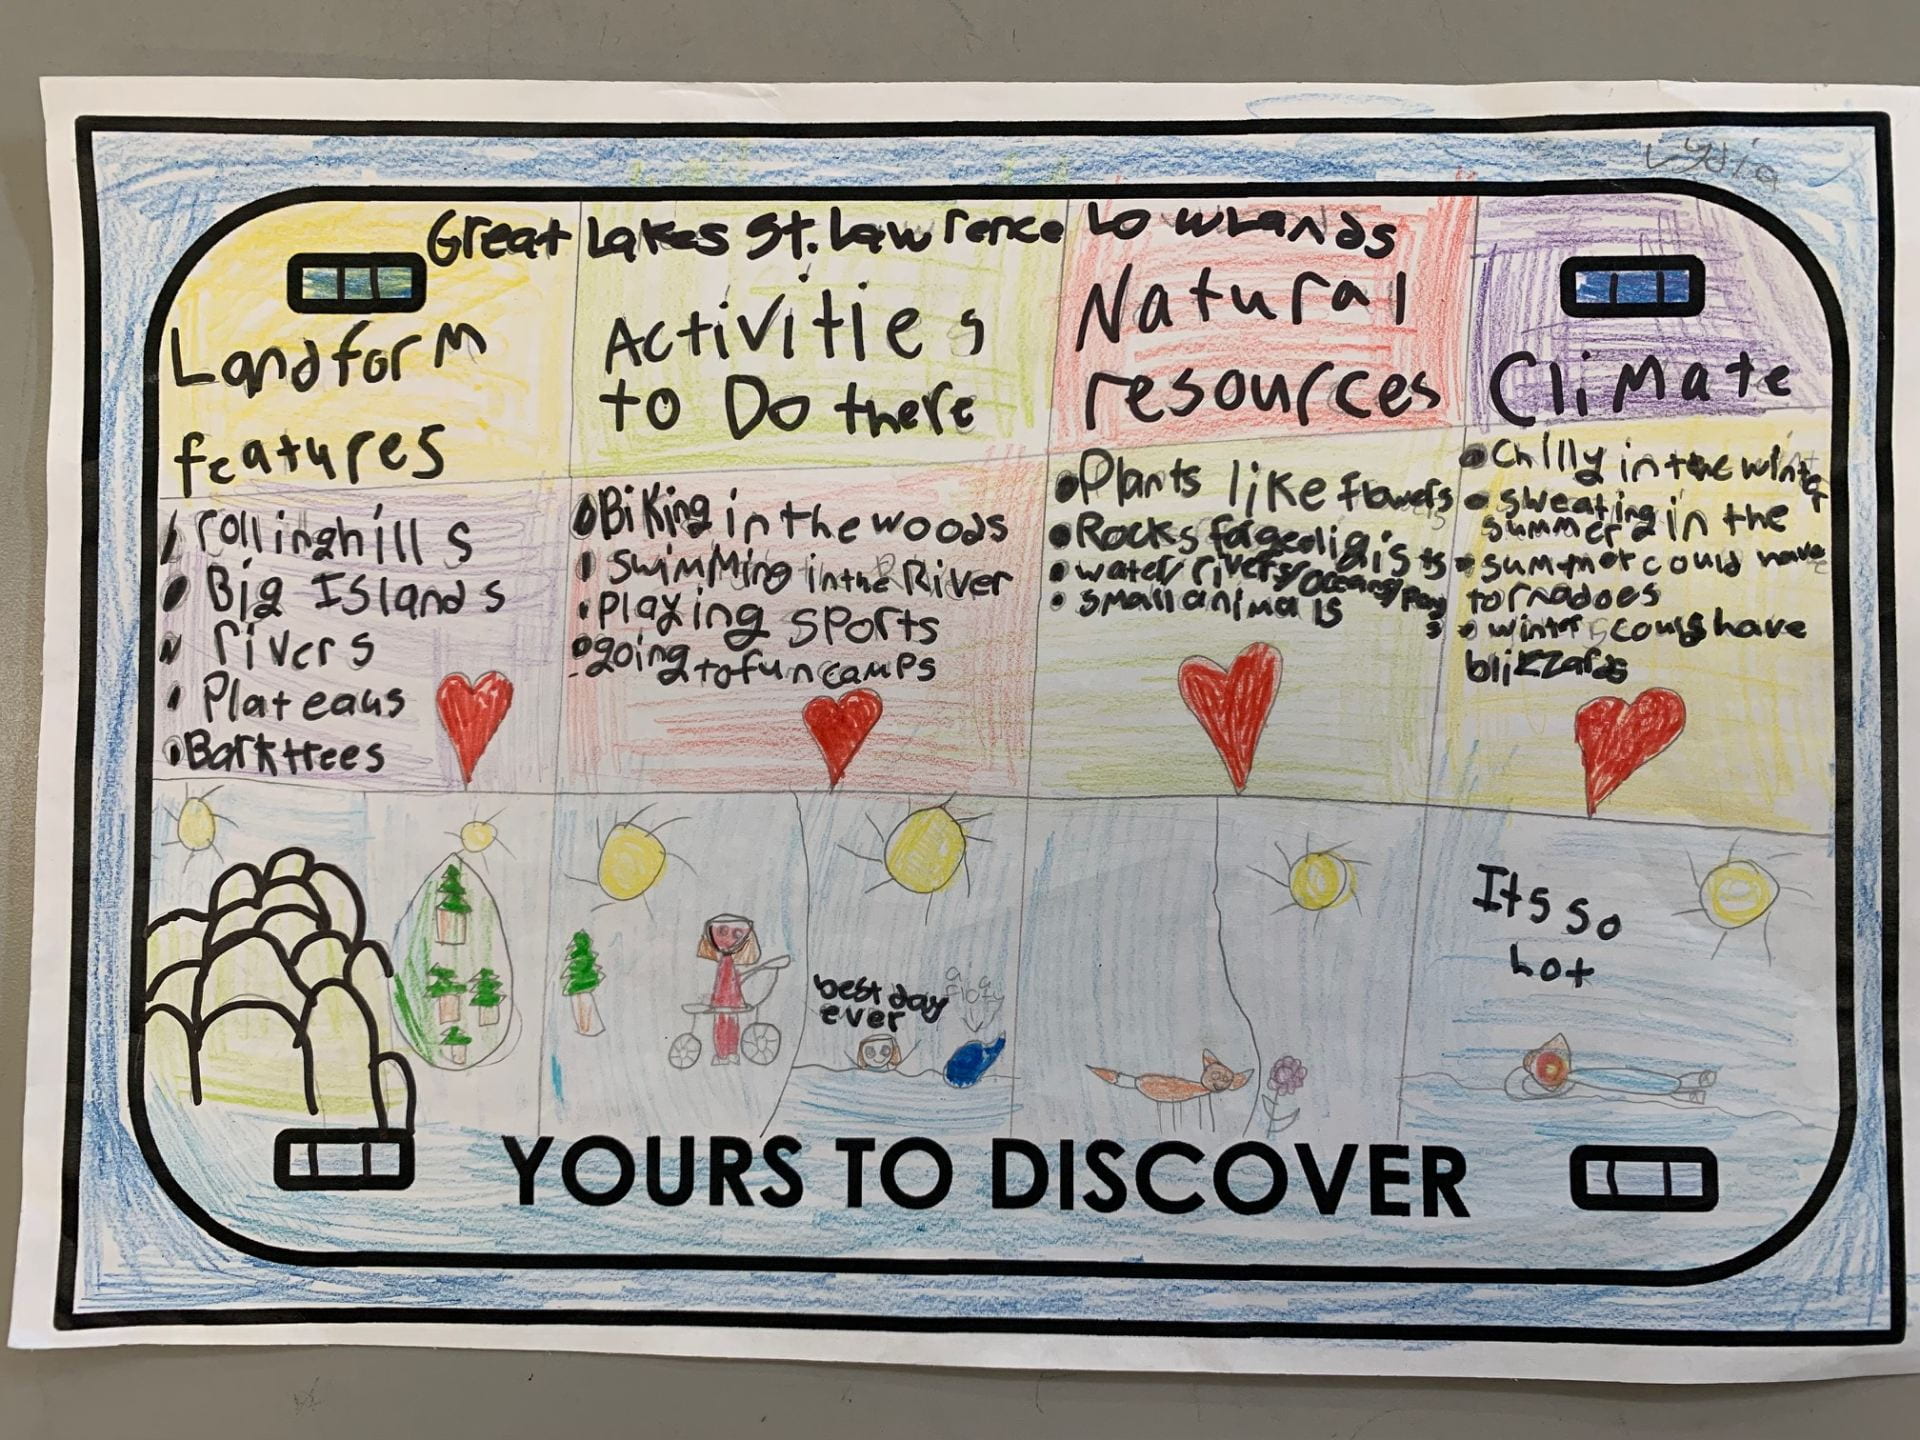 Lydia
Great Lakes St. Lawrence Lowlands
Landform
features
Activities
to Do there
Natural
resources
Climate
rollinghills
Big Islands
rivers
Plateaus
Barkttees
Biking in the woods
swimming in the River
Playing sports
going to fun camps
Plants like flowers
Rocks
water/rivers/Oceans/
small animals
Chilly in the winter
sweating in the
summer
summer could have
tornadoes
winter could have
blizzards
best day
ever
Its so
hot
YOURS TO DISCOVER